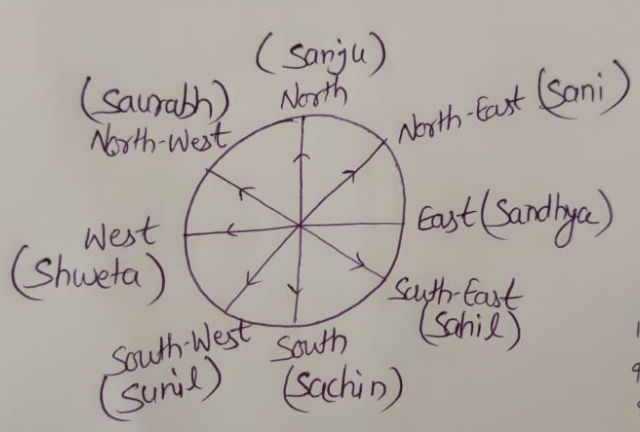 (Sanju)
North
(Saurabh)
North-West
North-East (Sani)
West
(Shweta)
East (Sandhya)
South-East
(Sahil)
South-West
(Sunil)
South
(Sachin)